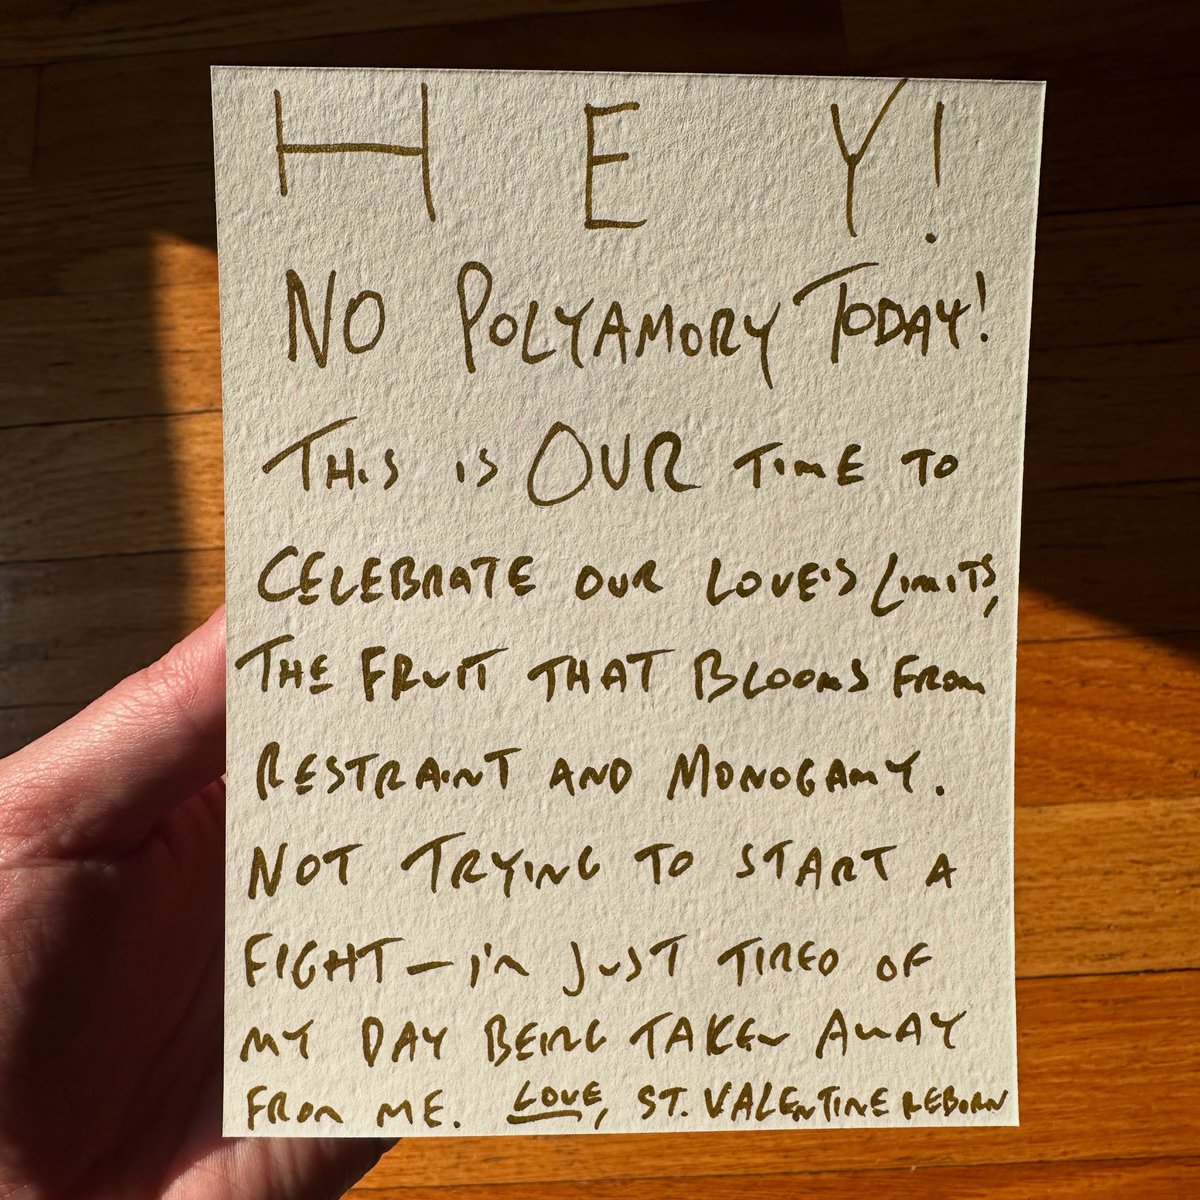 HEY!
NO POLYAMORY TODAY!
THIS IS OUR TIME TO
CELEBRATE OUR LOVE'S LIMITS,
THE FRUIT THAT BLOOMS FROM
RESTRAINT AND MONOGAMY.
NOT TRYING TO START A
FIGHT — I'M JUST TIRED OF
MY DAY BEING TAKEN AWAY
FROM ME. LOVE, ST. VALENTINE REBORN